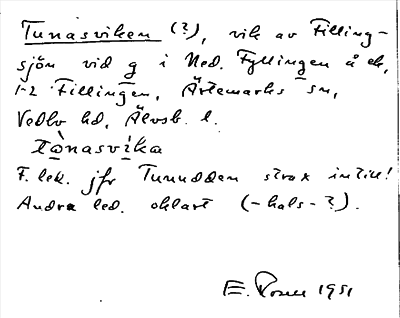 Tunasviken (?), vik av Filling-
sjön vid g i Ned. Fyllingen å ek,
1-2 Fillingen, Ärtemarks sn,
Vedbo hd, Älvsb. l.
tònasvika
F. led. jfr Tunudden strax intill!
Andra led. oklart (-hals-?).
E. 1951